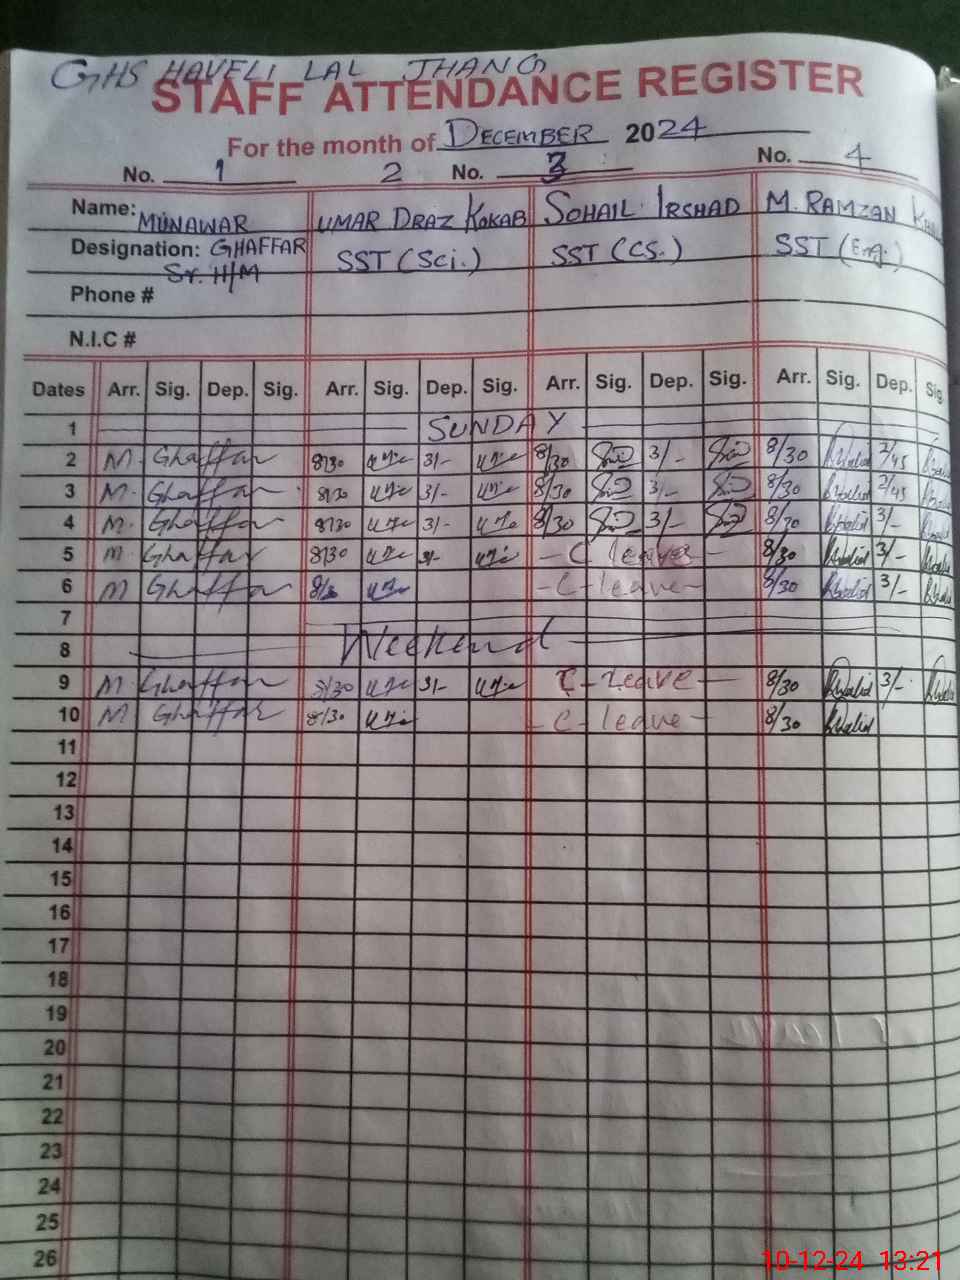 GHS HAVELI LAL JHANG
STAFF ATTENDANCE REGISTER
For the month of DECEMBER 2024
No. 1 2 No. 3 No. 4
Name: MUNAWAR UMAR DRAZ KOKAB SOHAIL IRSHAD M. RAMZAN
Designation: GHAFFAR SST (Sci.) SST (CS.) SST (Eng.)
Sr. H/M
Phone #
N.I.C #
Dates Arr. Sig. Dep. Sig. Arr. Sig. Dep. Sig. Arr. Sig. Dep. Sig. Arr. Sig. Dep. Sig.
1 SUNDAY
2 M. Ghaffar 8/30 3/- 8/30 3/- 8/30 2/45
3 M. Ghaffar 8/30 3/- 8/30 3/- 8/30 2/45
4 M. Ghaffar 8/30 3/- 8/30 3/- 8/30 3/-
5 M. Ghaffar 8/30 3/- - C leave - 8/30 3/-
6 M Ghaffar - C - leave - 8/30 3/-
7
8 Weekend
9 M. Ghaffar 8/30 3/- C - Leave - 8/30 3/-
10 M Ghaffar 8/30 - C - leave - 8/30
11
12
13
14
15
16
17
18
19
20
21
22
23
24
25
26
10-12-24 13:21